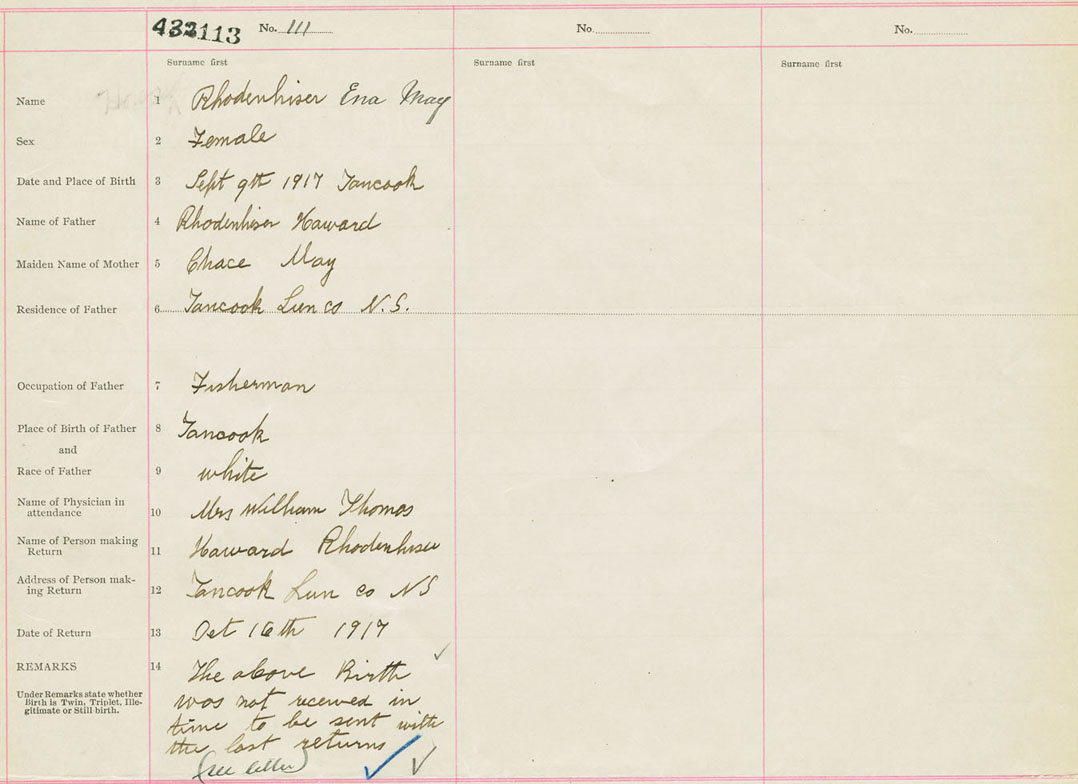 432113 No. 111 No. No.
Surname first Surname first Surname first
Name 1 Rhodenhiser Ena May
Sex 2 Female
Date and Place of Birth 3 Sept 9th 1917 Tancook
Name of Father 4 Rhodenhiser Haward
Maiden Name of Mother 5 Chace May
Residence of Father 6 Tancook Lun co N.S.
Occupation of Father 7 Fisherman
Place of Birth of Father 8 Tancook
and
Race of Father 9 white
Name of Physician in
attendance 10 Mrs William Thomas
Name of Person making
Return 11 Haward Rhodenhiser
Address of Person mak-
ing Return 12 Tancook Lun co NS
Date of Return 13 Oct 16th 1917
REMARKS 14 The above Birth
Under Remarks state whether
Birth is Twin, Triplet, Ille-
gitimate or Still-birth.
was not received in
time to be sent with
the last returns
(see letter)